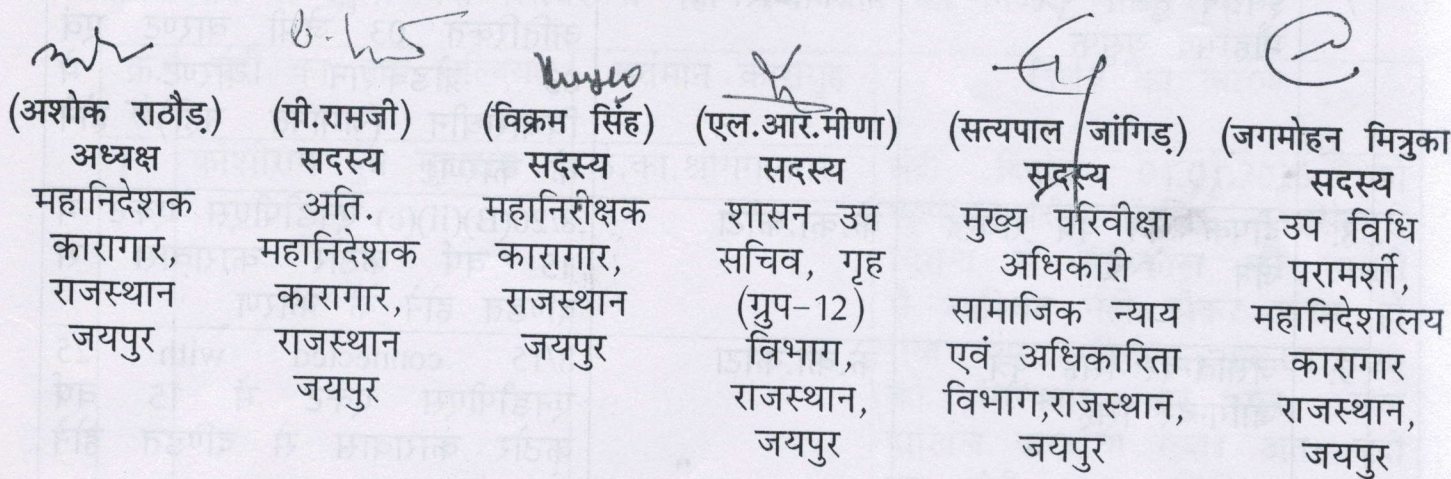 (अशोक राठौड़)
अध्यक्ष
महानिदेशक
कारागार
राजस्थान
जयपुर
(पी.रामजी)
सदस्य
अति.
महानिदेशक
कारागार,
राजस्थान
जयपुर
(विक्रम सिंह)
सदस्य
महानिरीक्षक
कारागार,
राजस्थान
जयपुर
(एल.आर.मीणा)
सदस्य
शासन उप
सचिव, गृह
(ग्रुप-12)
विभाग,
राजस्थान,
जयपुर
(सत्यपाल जांगिड़)
सदस्य
मुख्य परिवीक्षा
अधिकारी
सामाजिक न्याय
एवं अधिकारिता
विभाग,राजस्थान,
जयपुर
(जगमोहन मित्रुका
सदस्य
उप विधि
परामर्शी,
महानिदेशालय
कारागार
राजस्थान,
जयपुर